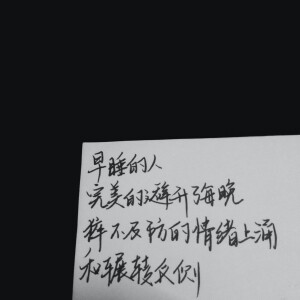 早睡的人
完美的避开了每晚
猝不及防的情绪上涌
和辗转反侧